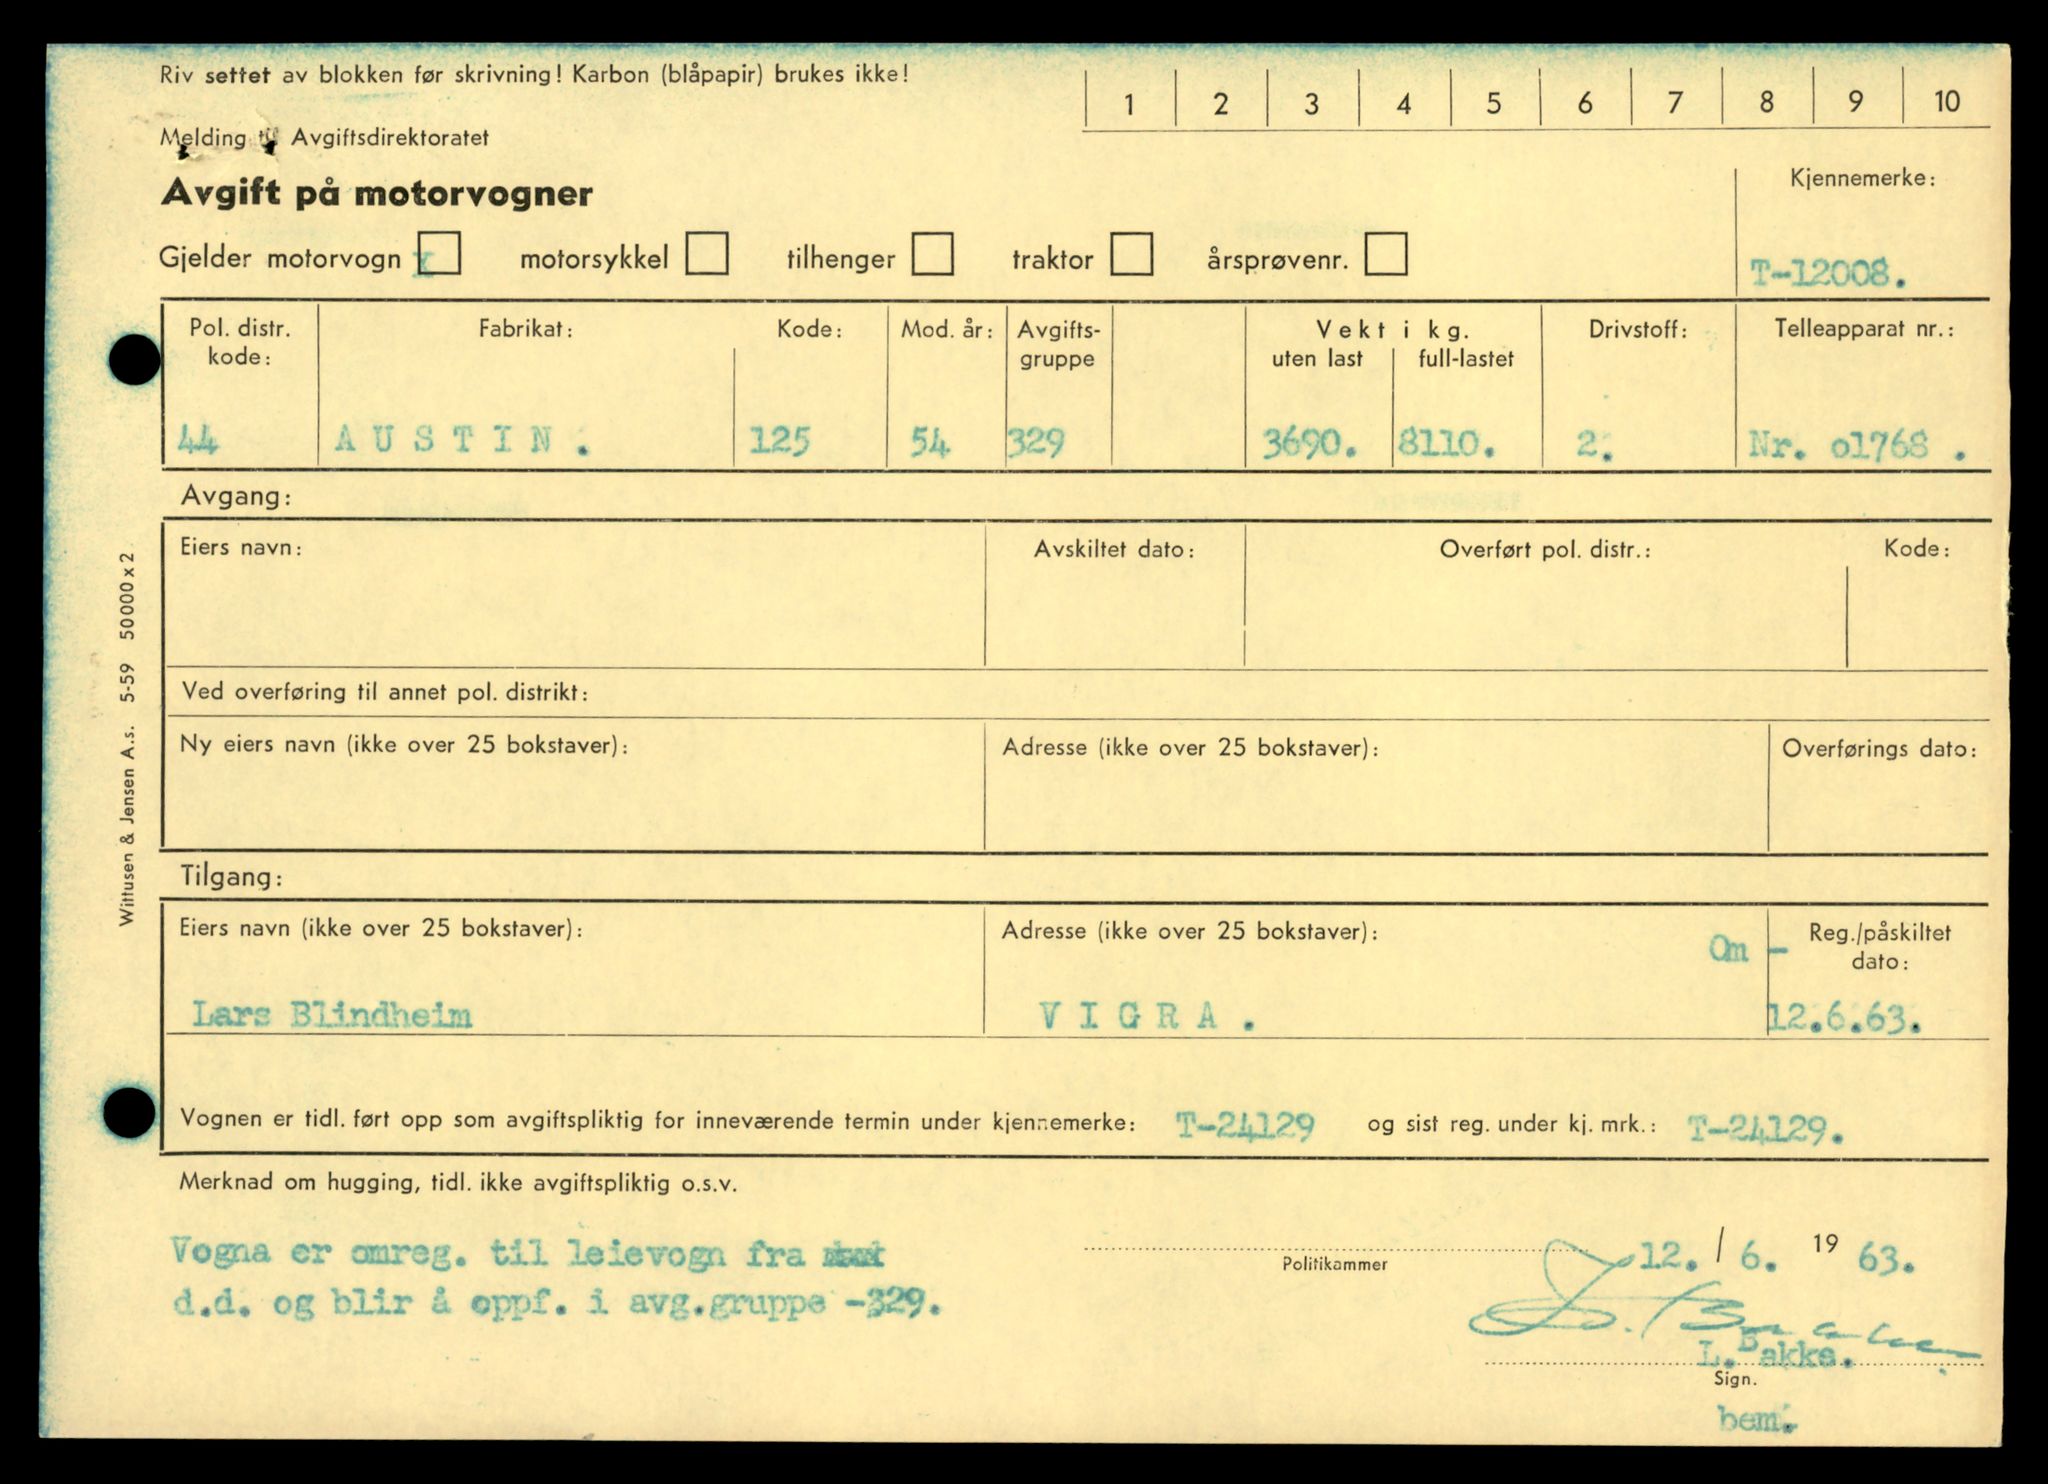 Riv settet av blokken før skrivning! Karbon (blåpapir) brukes ikke!
1 2 3 4 5 6 7 8 9 10
Melding til Avgiftsdirektoratet
Avgift på motorvogner
Kjennemerke:
Gjelder motorvogn x motorsykkel tilhenger traktor årsprøvenr.
T-12008.
Pol. distr. kode: Fabrikat: Kode: Mod. år: Avgifts-gruppe Vekt i kg. uten last full-lastet Drivstoff: Telleapparat nr.:
44 AUSTIN. 125 54 329 3690. 8110. 2. Nr. o1768 .
Avgang:
Eiers navn: Avskiltet dato: Overført pol. distr.: Kode:
Ved overføring til annet pol. distrikt:
Ny eiers navn (ikke over 25 bokstaver): Adresse (ikke over 25 bokstaver): Overførings dato:
Tilgang:
Eiers navn (ikke over 25 bokstaver): Adresse (ikke over 25 bokstaver): Om - Reg./påskiltet dato:
Lars Blindheim VIGRA. 12.6.63.
Vognen er tidl. ført opp som avgiftspliktig for inneværende termin under kjennemerke: T-24129 og sist reg. under kj. mrk.: T-24129.
Merknad om hugging, tidl. ikke avgiftspliktig o.s.v.
Vogna er omreg. til leievogn fra
d.d. og blir å oppf. i avg.gruppe -329.
12. / 6. 19 63.
Politikammer
L. Bakke.
L. Bakke.
Sign.
bem.
Wittusen & Jensen A.s. 5-59 50000 x 2